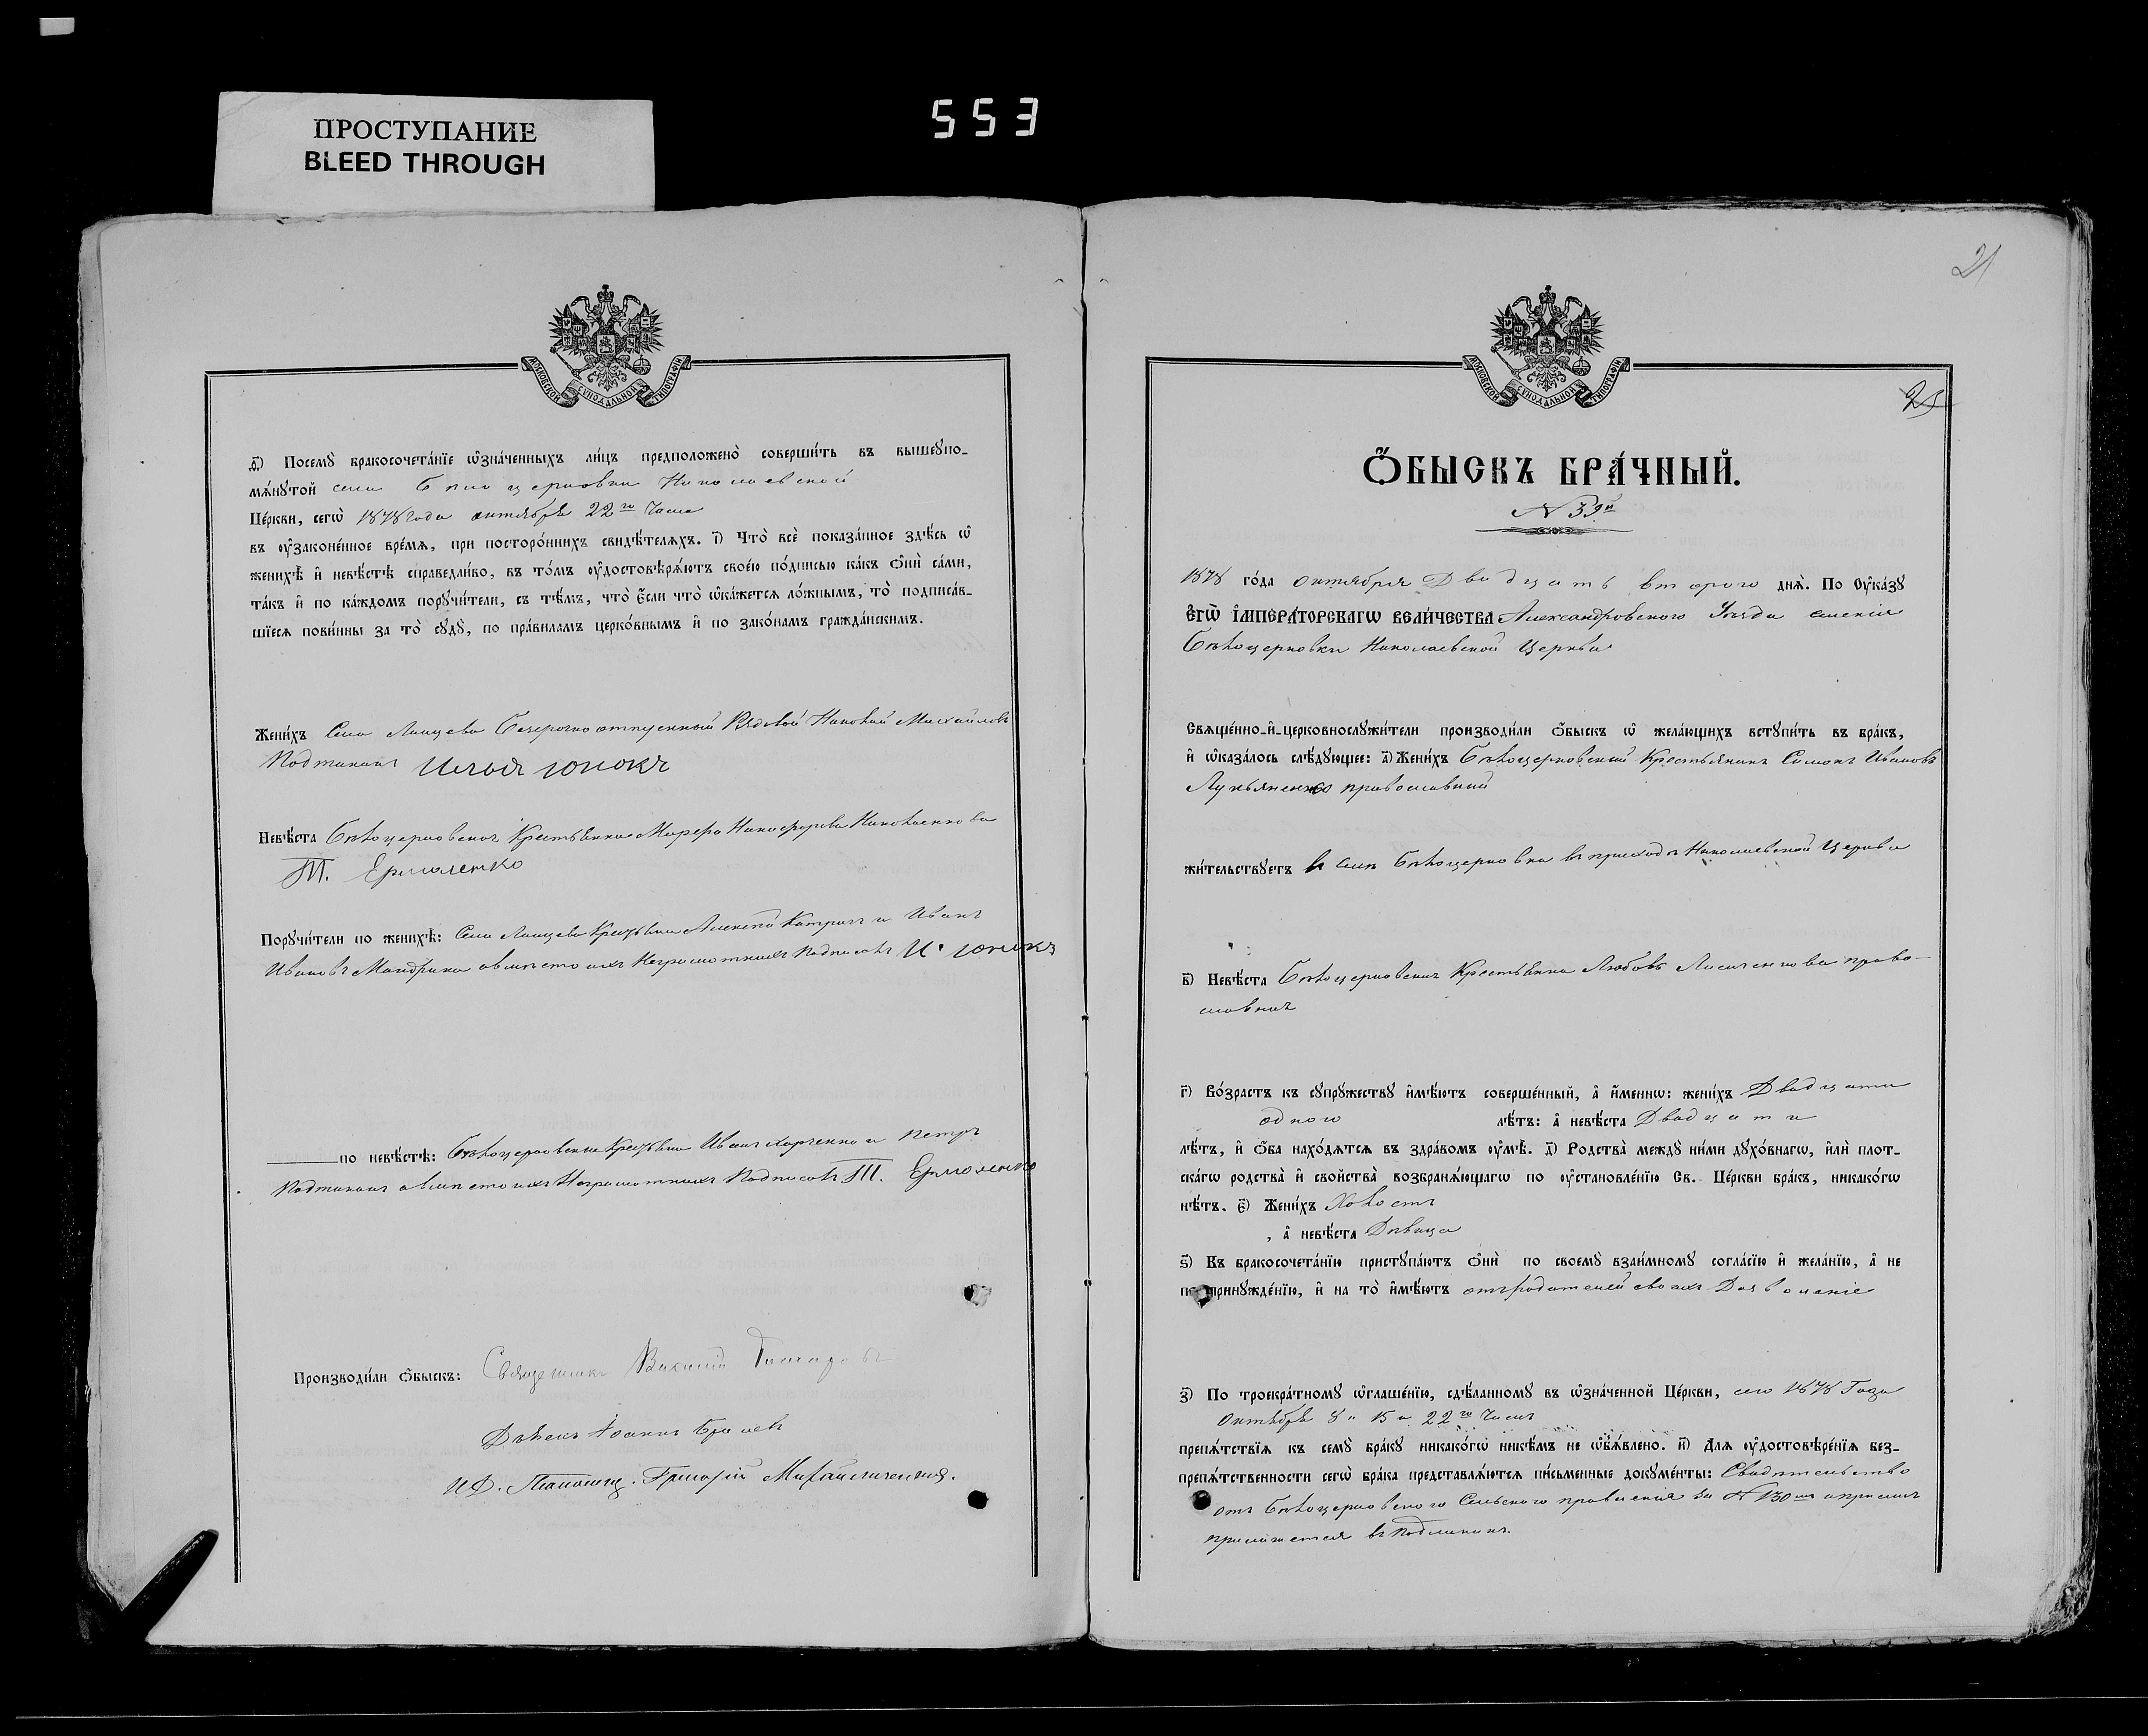 ПРОСТУПАНИЕ
BLEED THROUGH
553
МОСКОВСКОЙ СѴНОДАЛЬНОЙ ТИПОГРАФІИ
ѳ҃) Посемꙋ̀ бракосочета́нїе ѡ҆зна́ченныхъ ли́цъ предположено̀ соверши́ть въ вышеꙋпо-
мѧ́нꙋтой села Бѣлоцерковки Николаевской
Це́ркви, сегѡ̀ 1878 года октября 22го числа
въ ᲂу҆законе́нное вре́мѧ, при посторо́ннихъ свидѣ́телѧхъ. і҃) Что̀ всѐ пока́занное здѣ́сь ѡ҆
женихѣ̀ и҆ невѣ́стѣ справедли́во, въ то́мъ ᲂу҆достовѣрѧ́ютъ свое́ю по́дписью ка́къ ѻ҆нѝ са́ми,
та́къ и҆ по ка́ждомъ порꙋчи́тели, съ тѣ́мъ, что̀ є҆́сли что̀ ѡ҆ка́жетсѧ ло́жнымъ, то̀ подписа́в-
шїесѧ пови́нны за то̀ сꙋдꙋ̀, по пра́виламъ церко́внымъ и҆ по зако́намъ гражда́нскимъ.
Жени́хъ Села безсрочноотпускный Рядовой Михайловъ
Илья Юнокъ
Невѣ́ста Бѣлоцерковская Крестьянка Марфа Никифорова
Т. Ермоленко
Порꙋчи́тели по женихѣ̀: Села Алексѣй и Иванъ
Ивановъ Мандрика а вмѣсто ихъ Неграмотныхъ Подписалъ И. Юнокъ
по невѣ́стѣ: Бѣлоцерковские Иванъ Харченко и Петръ
а вмѣсто ихъ Неграмотныхъ Подписалъ Т. Ермоленко
Производи́ли ѻ҆́быскъ: Священникъ Василій
Дьякъ Іоаннъ
И.Д. Григорій
21
25
МОСКОВСКОЙ СѴНОДАЛЬНОЙ ТИПОГРАФІИ
Ѻ҆́БЫСКЪ БРА́ЧНЫЙ.
N 39й
1878 го́да октября Двадцать второго днѧ̀. По Оу҆ка́зꙋ
Є҆ГѠ̀ І҆МПЕРА́ТОРСКАГѠ ВЕЛИ́ЧЕСТВА Александровского Уѣзда селенія
Бѣлоцерковки Николаевской Церкви
Свѧще́нно-и҆-церковнослꙋжи́тели производи́ли ѻ҆́быскъ ѡ҆ жела́ющихъ встꙋпи́ть въ бра́къ,
и҆ ѡ҆каза́лось слѣ́дꙋющее: а҃) Жени́хъ Бѣлоцерковский Крестьянинъ Симонъ Ивановъ
Лукьяненко православный
жи́тельствꙋетъ в селѣ Бѣлоцерковка въ приходѣ Николаевской Церкви
в҃) Невѣ́ста Бѣлоцерковская Крестьянка Любовь Лисиченкова право-
славная
г҃) Во́зрастъ къ сꙋпрꙋ́жествꙋ и҆мѣ́ютъ соверше́нный, а҆ и҆́меннѡ: жени́хъ Двадцати
одного лѣ́тъ: а҆ невѣ́ста Двадцати
лѣ́тъ, и҆ ѻ҆́ба нахо́дѧтсѧ въ здра́вомъ ᲂу҆мѣ̀. д҃) Родства̀ междꙋ̀ ни́ми дꙋхо́внагѡ, и҆лѝ плот-
ска́гѡ родства̀ и҆ сво́йства возбранѧ́ющагѡ по ᲂу҆становле́нїю Св. Це́ркви бра́къ, никако́гѡ
нѣ́тъ. є҃) Жени́хъ Холостъ
, а҆ невѣ́ста Дѣвица
ѕ҃) Къ бракосочета́нїю пристꙋпа́ютъ ѻ҆нѝ по своемꙋ̀ взаи́мномꙋ согла́сїю и҆ жела́нїю, а҆ не
по принꙋжде́нїю, и҆ на то̀ и҆мѣ́ютъ отъ родителей своихъ Дозволеніе
з҃) По троекра́тномꙋ ѡ҆глаше́нїю, сдѣ́ланномꙋ въ ѡ҆зна́ченной Це́ркви, сего 1878 Года
Октября 8, 15 и 22го Числъ
препѧ́тствїѧ къ семꙋ̀ бра́кꙋ никако́гѡ никѣ́мъ не ѡ҆б̾ѧ́влено. и҃) Длѧ ᲂу҆достовѣре́нїѧ без-
препѧ́тственности сегѡ̀ бра́ка представлѧ́ютсѧ пи́сьменные докꙋме́нты: Свидѣтельство
отъ Бѣлоцерковского Сельского правленія за N 130
прилагается въ подлиникѣ.